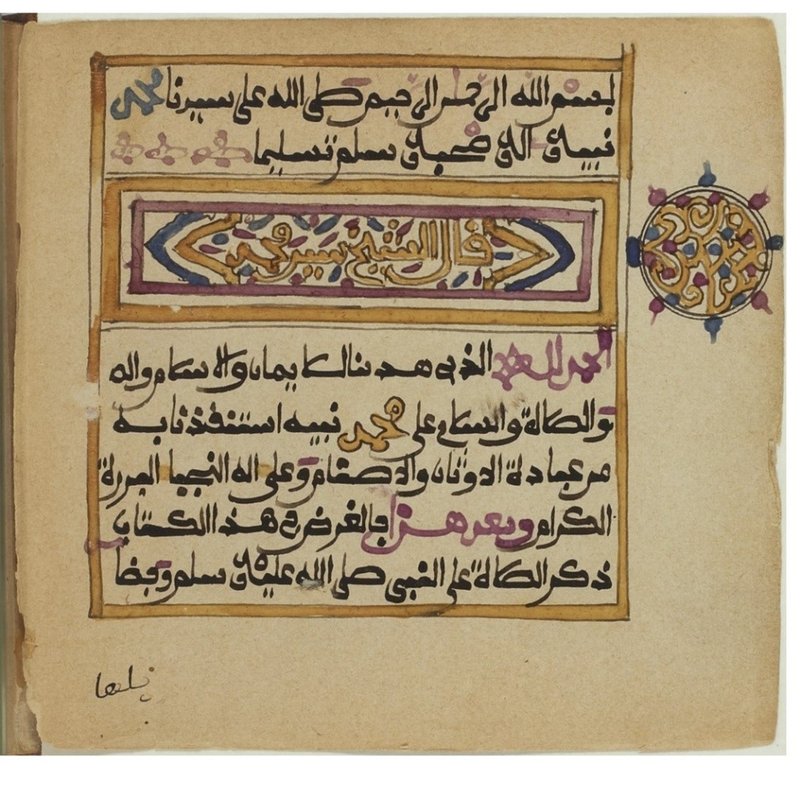 بسم الله الرحمن الرحيم صلى الله على سيدنا محمد
نبيه واله وصحبه وسلم تسليما
قال الشيخ سيدي محمد
الحمد لله الذي هدىنا للايمان والاسلام واله
والصلاة والسلام على محمد نبيه استنقذنا به
من عبادة الاوثان والاصنام وعلى اله النجبا البررة
الكرام وبعد هذا فالغرض في هذا الكتاب
ذكر الصلاة على النبي صلى الله عليه وسلم وفضا
يلها